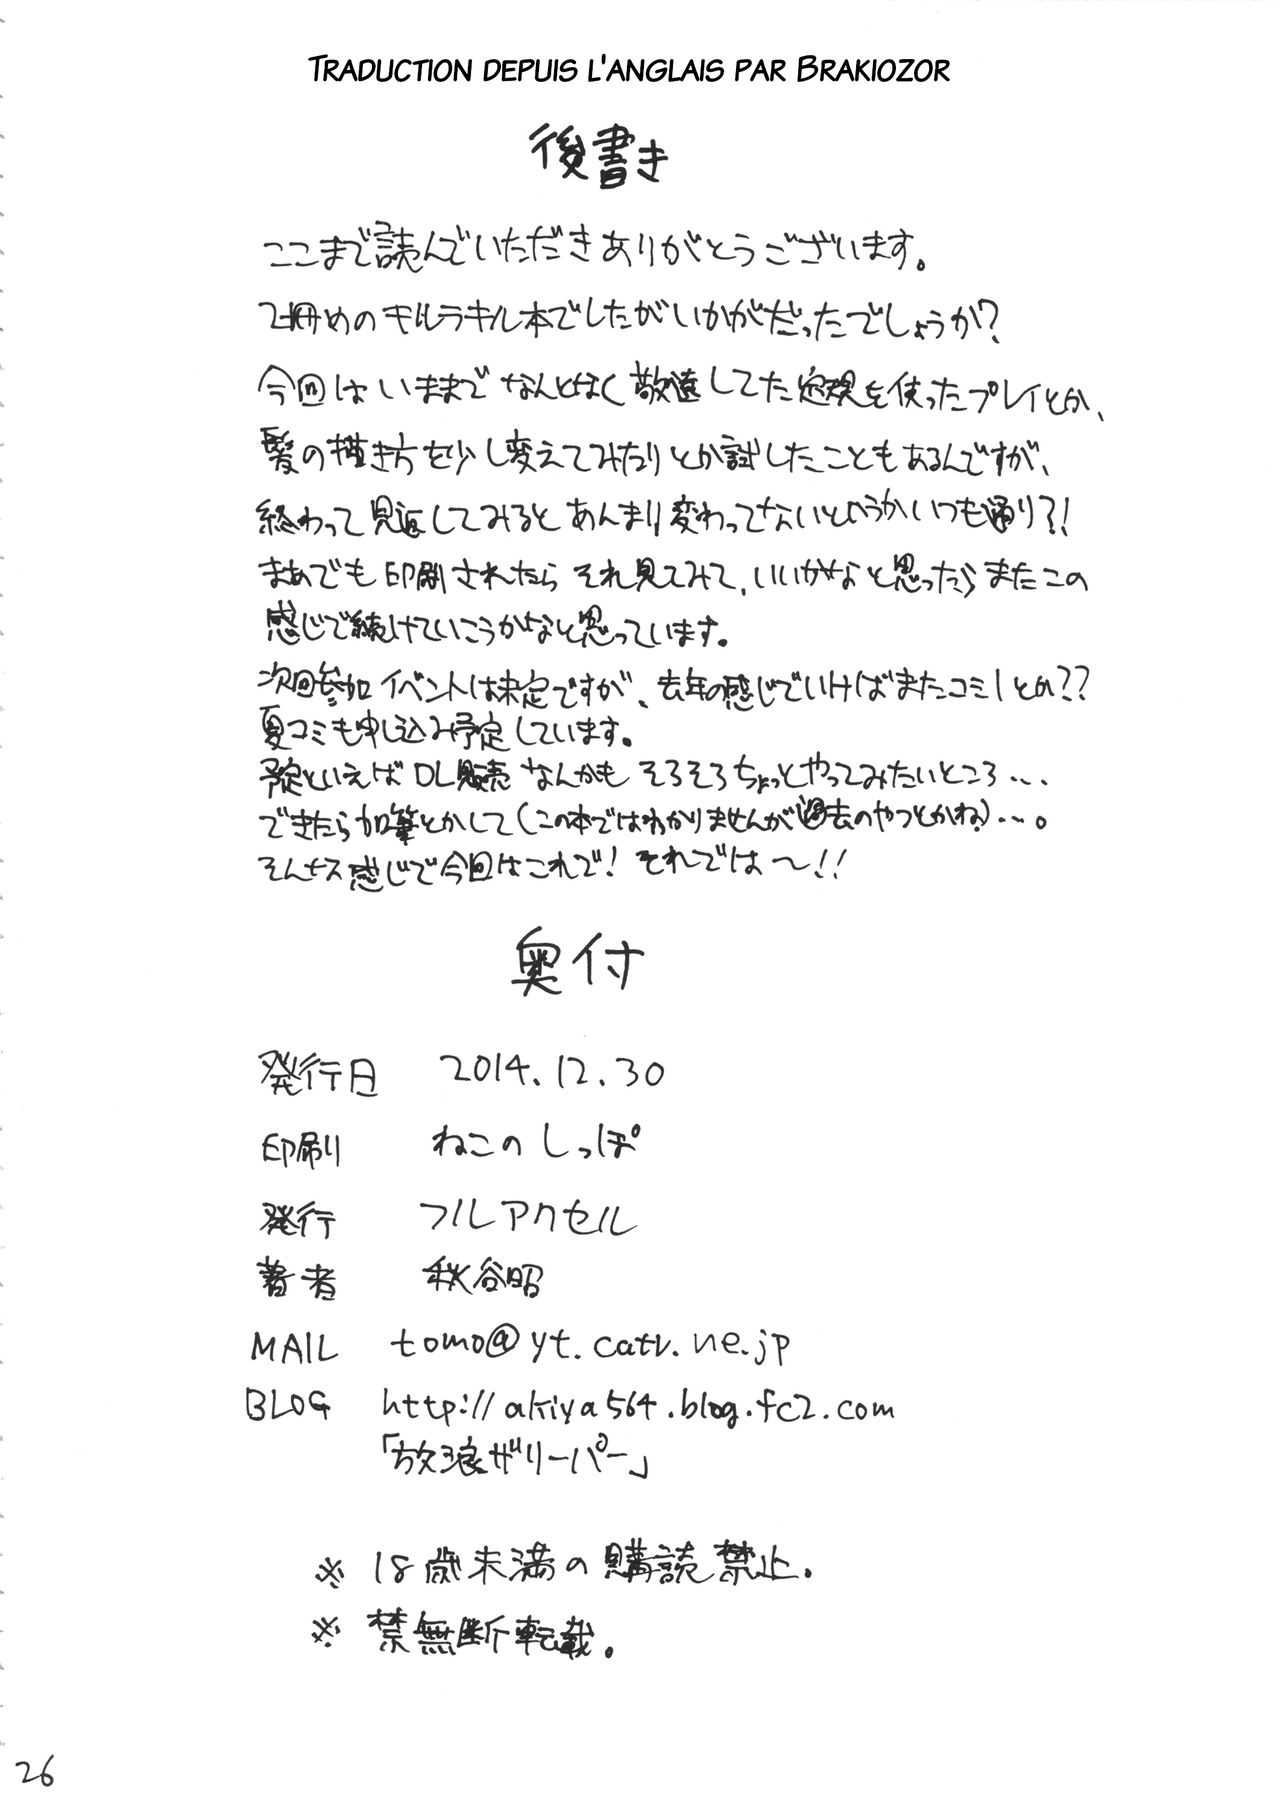 TRADUCTION DEPUIS L'ANGLAIS PAR BRAKIOZOR
後書き
ここまで読んでいただきありがとうございます。
2冊めのキルラキル本でしたがいかがだったでしょうか?
今回はいままでなんとなく敬遠してた定規を使ったプレイとか、
髪の描き方を少し変えてみたりとか試したこともあるんですが、
終わって見返してみるとあんまり変わってないというかいつも通り?!
まあでも印刷されたらそれ見てみて、いいかなと思ったらまたこの
感じで続けていこうかなと思っています。
次回参加イベントは未定ですが、去年の感じでいけばまたコミ1とか??
夏コミも申し込み予定しています。
予定といえばDL販売なんかもそろそろちょっとやってみたいところ...
できたら加筆とかして(この本ではわかりませんが過去のやつとかね)...。
そんな感じで今回はこれで!それでは〜!!
奥付
発行日 2014.12.30
印刷 ねこのしっぽ
発行 フルアクセル
著者 秋谷昭
MAIL tomo@yt.catv.ne.jp
BLOG http://akiya564.blog.fc2.com
「放浪ザリーパー」
※ 18歳未満の購読禁止.
※ 禁無断転載.
26